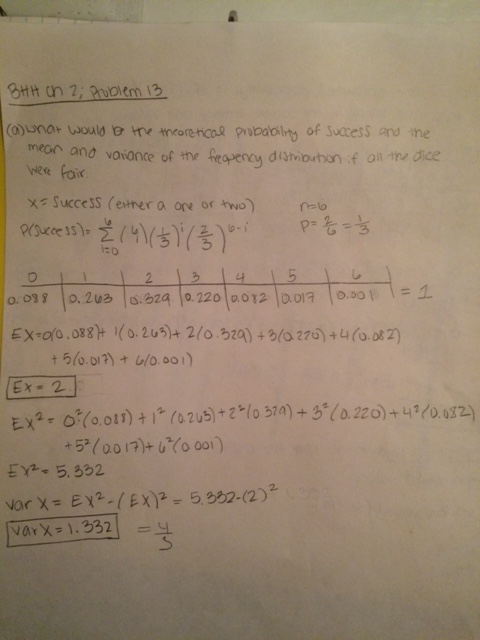 BHH Ch 2; Problem 13
(a) what would be the theoretical probability of success and the
mean and variance of the frequency distribution if all the dice
were fair
x = success (either a one or two) n=6
P(success) = 6 Σ i=0 (4)(1/3)^i (2/3)^6-i p= 2/6 = 1/3
0 1 2 3 4 5 6
0.088 0.263 0.329 0.220 0.082 0.017 0.001 = 1
EX=0(0.088)+ 1(0.263)+ 2(0.329)+3(0.220)+4(0.082)
+5(0.017) + 6(0.001)
EX = 2
EX² = 0²(0.088) + 1²(0.263)+2²(0.329)+3²(0.220)+4²(0.082)
+5²(0.017)+6²(0.001)
EX² = 5.332
var X = EX² - (EX)² = 5.332-(2)²
Var X = 1.332 = 4/3